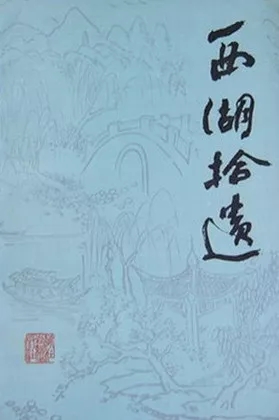 西湖拾遗